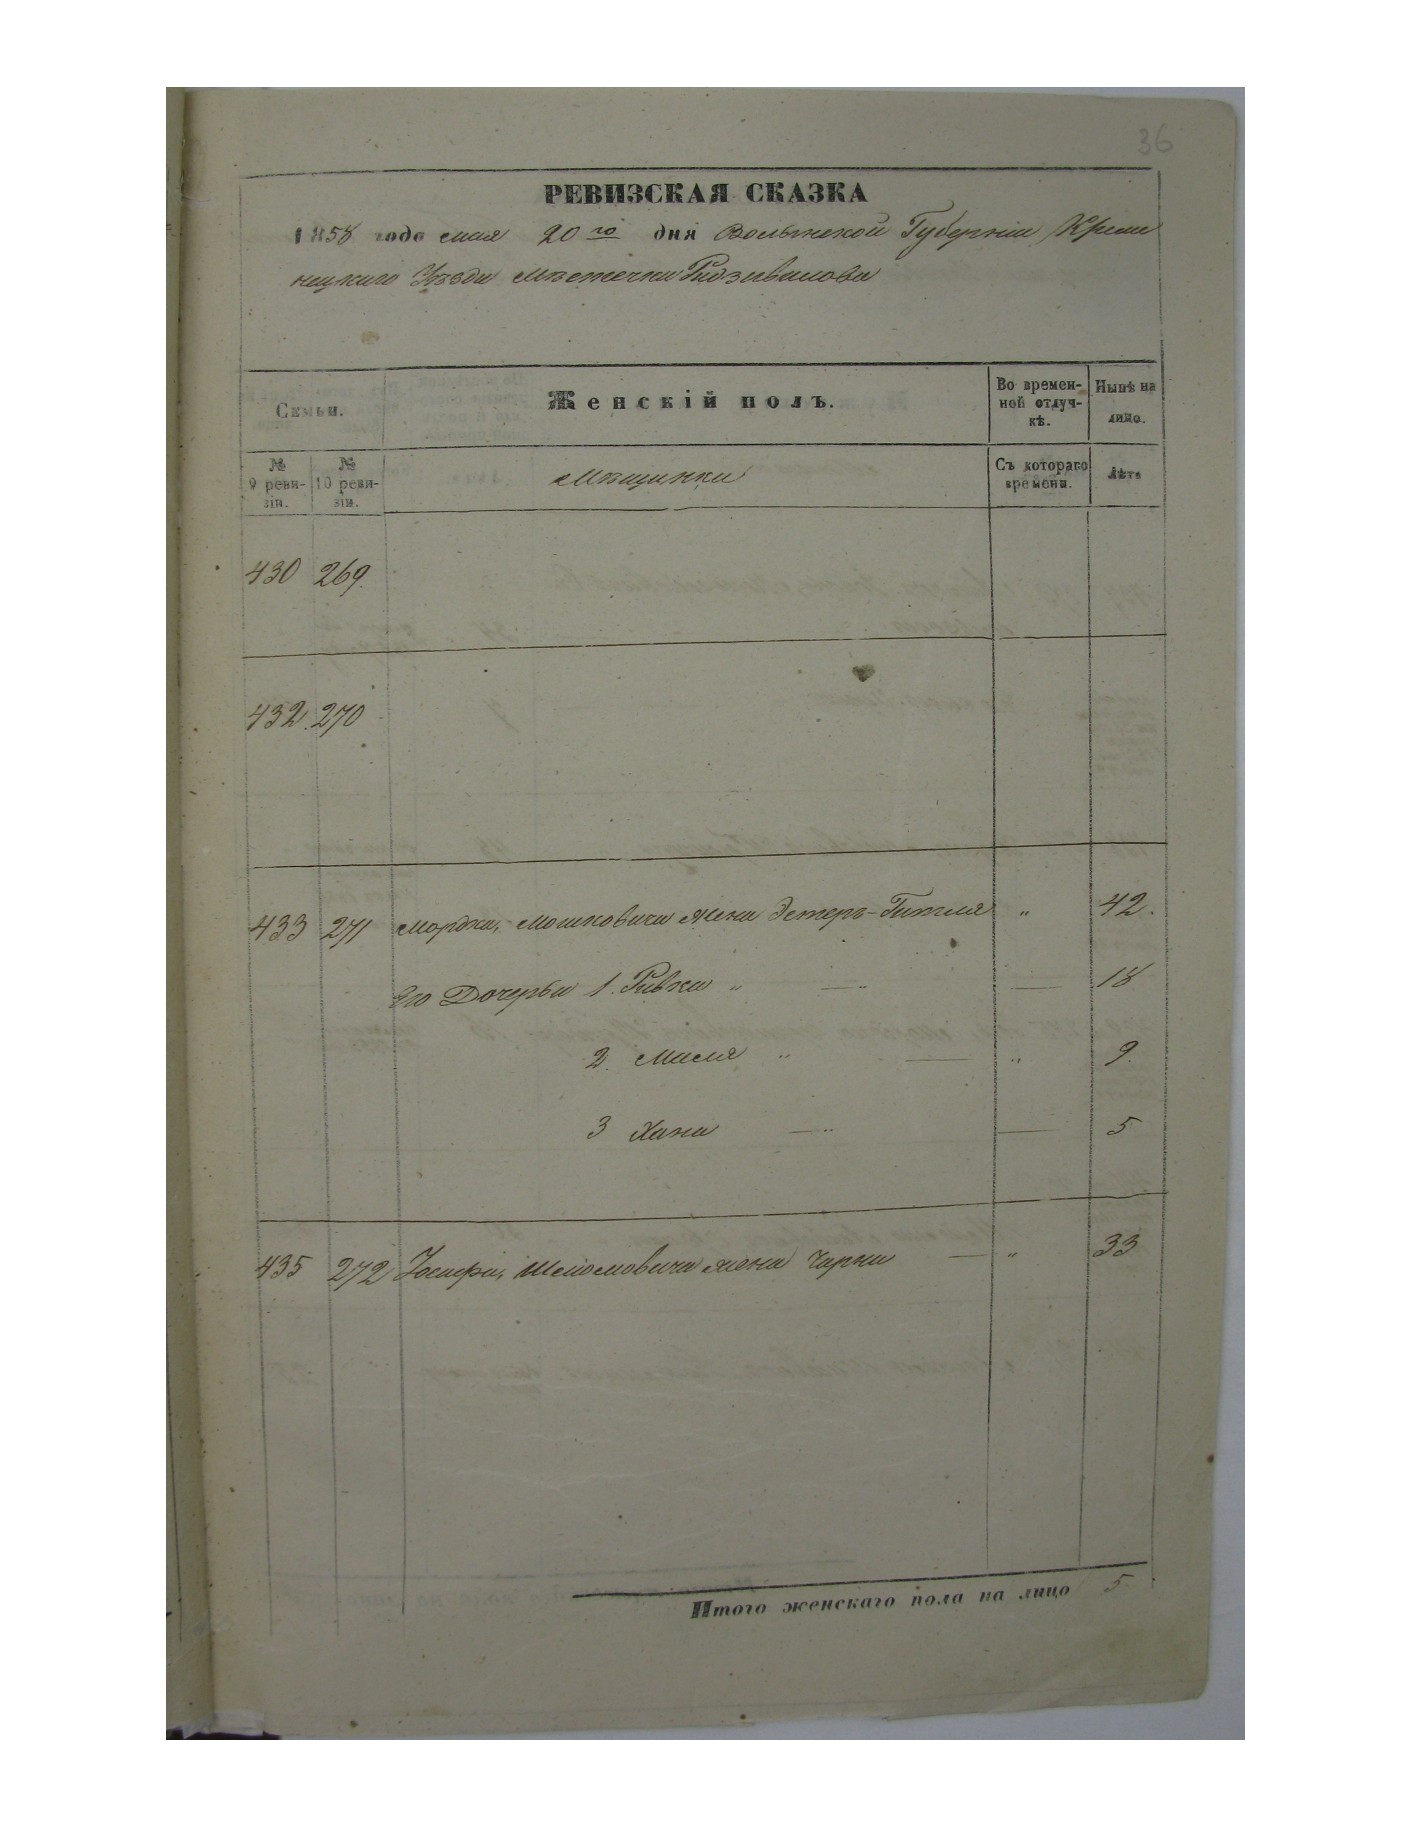 36
РЕВИЗСКАЯ СКАЗКА
1858 года мая 20го дня Волынской Губерніи Креме
нецкаго Уѣзда Мѣстечка Радзивилова
Семьи.
Женскій полъ.
Во времен-
ной отлуч-
кѣ.
Нынѣ на
лицо.
№
9 реви-
зіи.
№
10 реви-
зіи.
Мѣщанки
Съ котораго
времени.
Лѣта
430 269.
432. 270
433 271 Мордка, Мошковича жена Эстеръ-Гитля „ 42.
Его Дочерьи 1. Ривка „ — — 18
2. Мася „ — „ 9.
3 Хана — — 5
435 272 Іосифа, Шлiомовича жена Чарна — „ 33
Итого женскаго пола на лицо 5